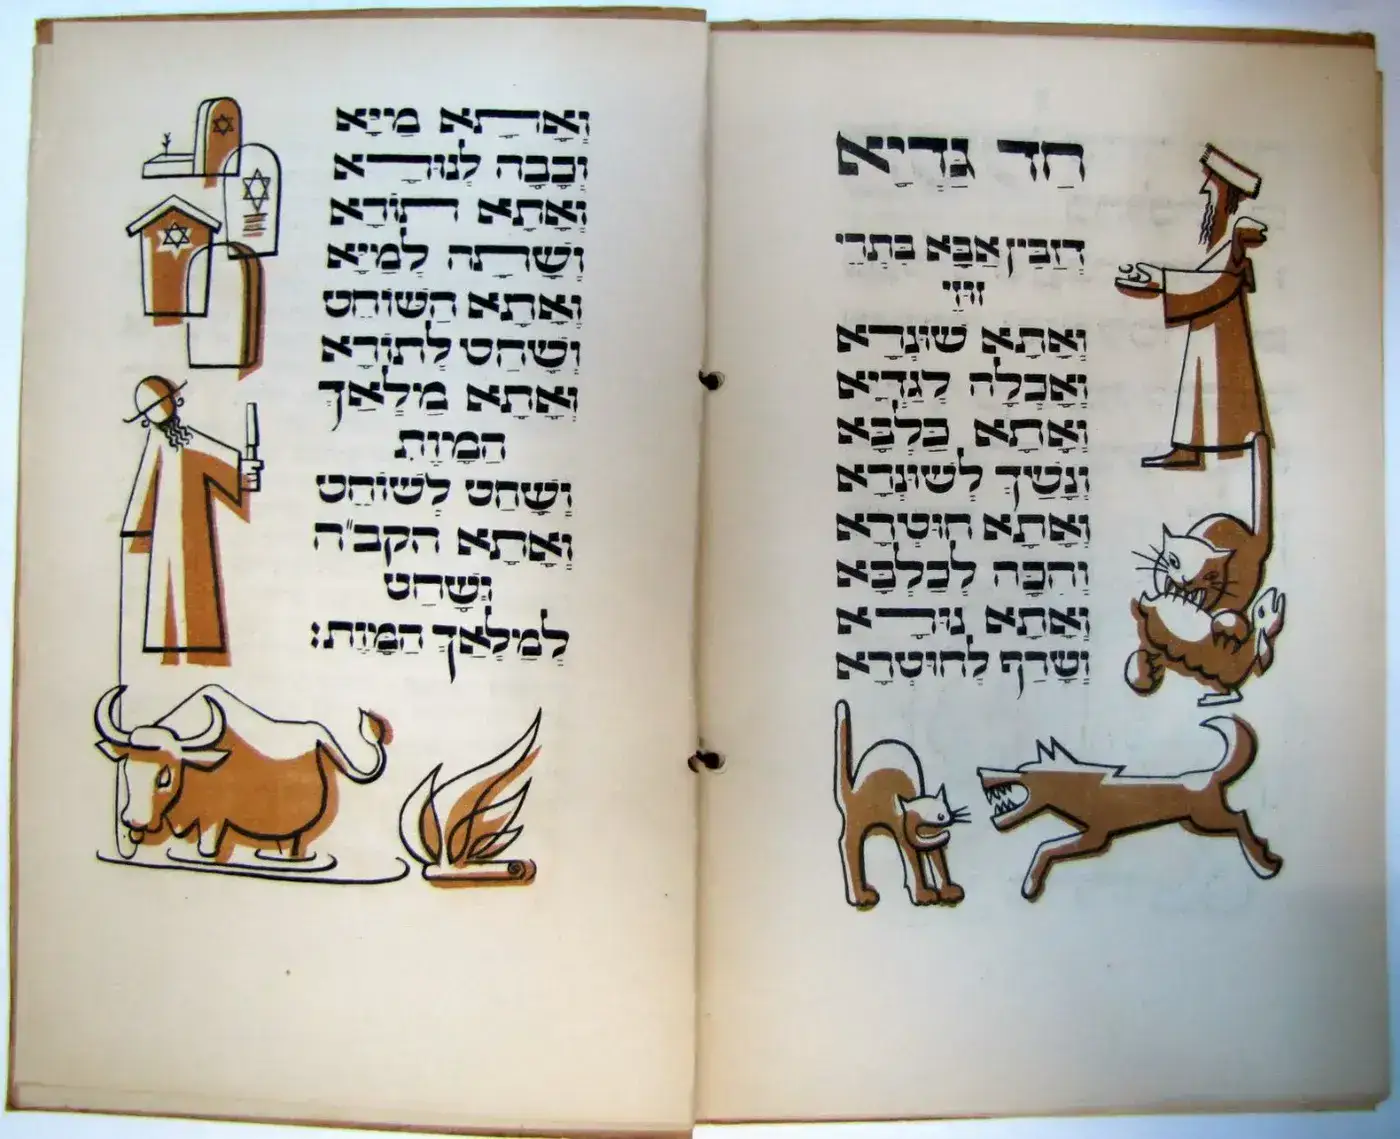 חַד גַּדְיָא
דְזַבִּין אַבָּא בִּתְרֵי
זוּזֵי
וְאָתָא שׁוּנְרָא
וְאָכְלָה לְגַדְיָא
וְאָתָא כַּלְבָּא
וְנָשַׁךְ לְשׁוּנְרָא
וְאָתָא חוּטְרָא
וְהִכָּה לְכַלְבָּא
וְאָתָא נוּרָא
וְשָׂרַף לְחוּטְרָא
וְאָתָא מַיָּא
וְכָבָה לְנוּרָא
וְאָתָא תוֹרָא
וְשָׁתָה לְמַיָּא
וְאָתָא הַשּׁוֹחֵט
וְשָׁחַט לְתוֹרָא
וְאָתָא מַלְאַךְ
הַמָּוֶת
וְשָׁחַט לְשׁוֹחֵט
וְאָתָא הקב״ה
וְשָׁחַט
לְמַלְאַךְ הַמָּוֶת: